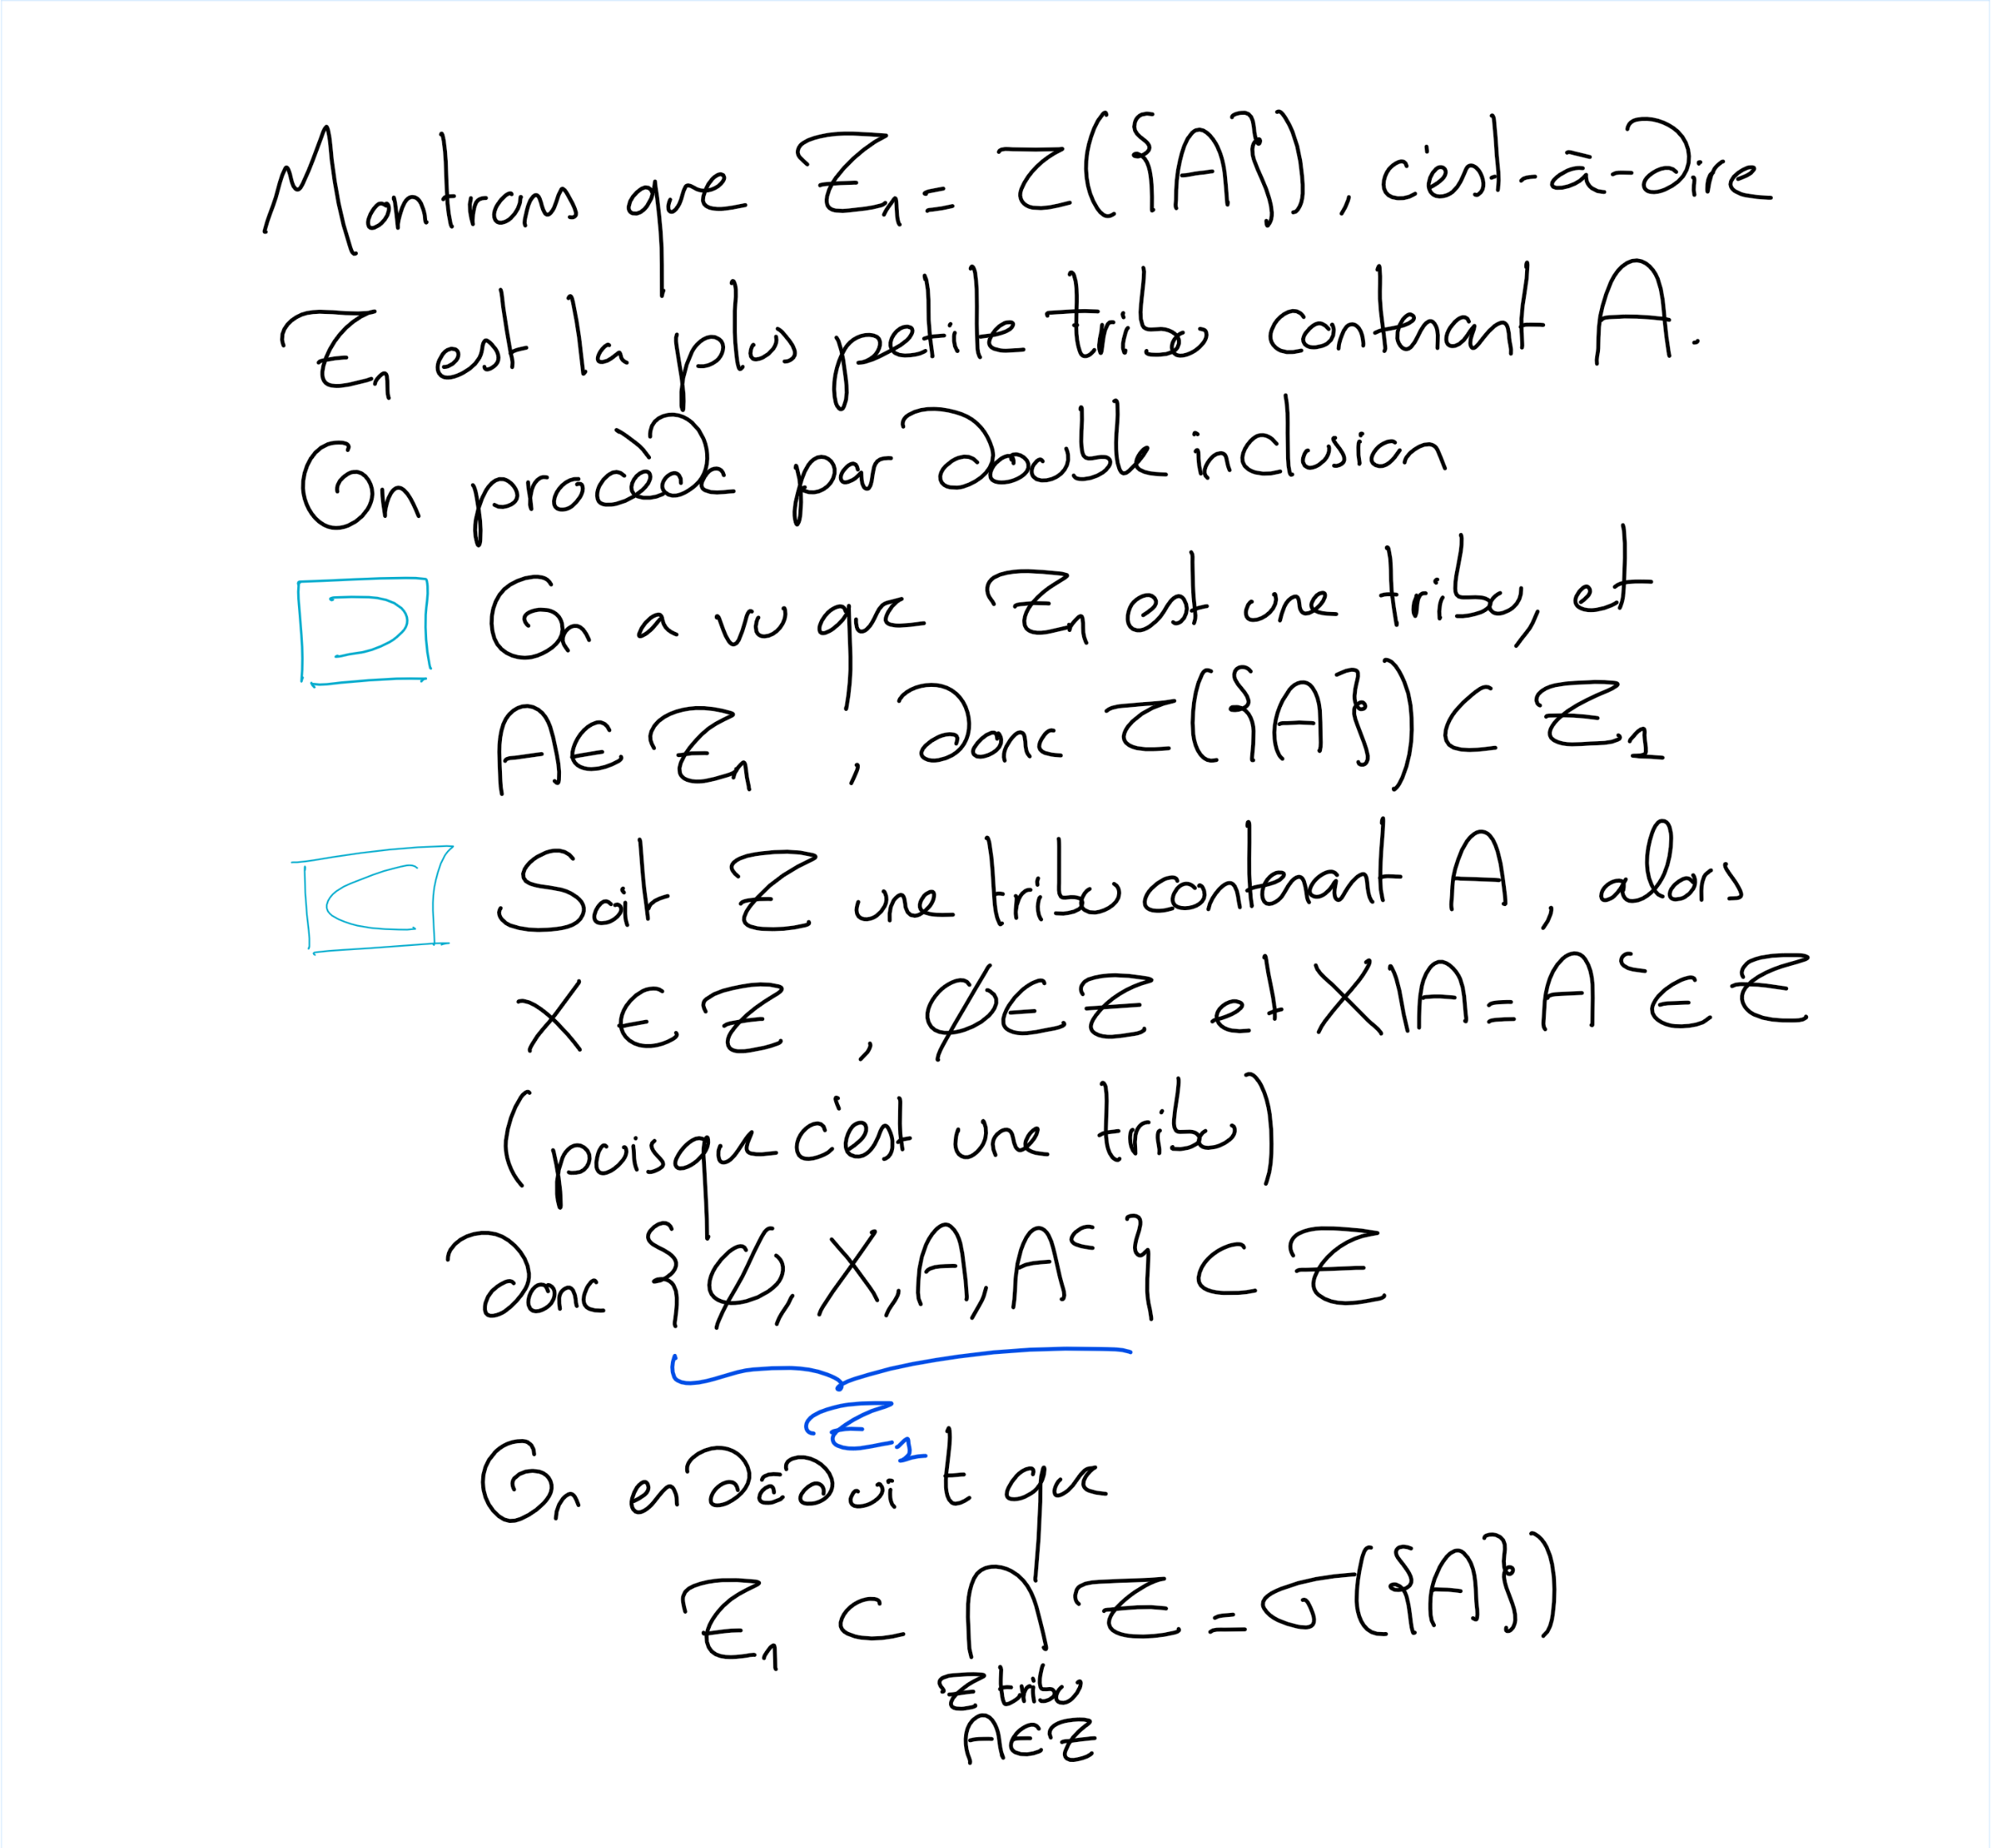 Montrons que Z₁ = Z({A}), c'est-à-dire
Z₁ est la plus petite tribu contenant A.
On procède par double inclusion
⊃ On a vu que Z₁ est une tribu, et
A ∈ Z₁, donc Z({A}) ⊂ Z₁
⊂ Soit Z une tribu contenant A, alors
X ∈ Z, ∅ ∈ Z et X\A = Aᶜ ∈ Z
(puisque c'est une tribu)
donc {∅, X, A, Aᶜ} ⊂ Z
Z₁
On en déduit que
Z₁ ⊂ ⋂ Z = σ({A})
Z tribu
A ∈ Z